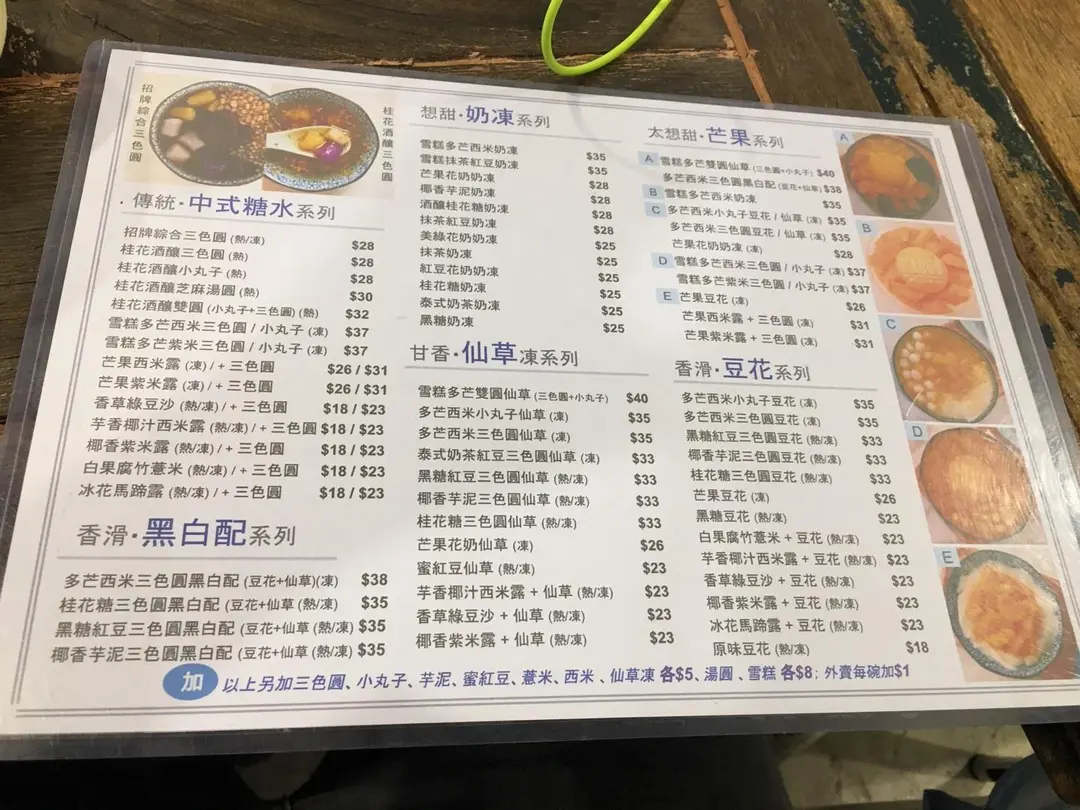 招牌綜合三色圓
桂花酒釀三色圓
傳統·中式糖水系列
招牌綜合三色圓 (熱/凍) $28
桂花酒釀三色圓 (熱) $28
桂花酒釀小丸子 (熱) $28
桂花酒釀芝麻湯圓 (熱) $30
桂花酒釀雙圓 (小丸子+三色圓) (熱) $32
雪糕多芒西米三色圓 / 小丸子 (凍) $37
雪糕多芒紫米三色圓 / 小丸子 (凍) $37
芒果西米露 (凍) / + 三色圓 $26 / $31
芒果紫米露 (凍) / + 三色圓 $26 / $31
香草綠豆沙 (熱/凍) / + 三色圓 $18 / $23
芋香椰汁西米露 (熱/凍) / + 三色圓 $18 / $23
椰香紫米露 (熱/凍) / + 三色圓 $18 / $23
白果腐竹薏米 (熱/凍) / + 三色圓 $18 / $23
冰花馬蹄露 (熱/凍) / + 三色圓 $18 / $23
香滑·黑白配系列
多芒西米三色圓黑白配 (豆花+仙草)(凍) $38
桂花糖三色圓黑白配 (豆花+仙草 (熱/凍) $35
黑糖紅豆三色圓黑白配 (豆花+仙草 (熱/凍) $35
椰香芋泥三色圓黑白配 (豆花+仙草 (熱/凍) $35
想甜·奶凍系列
雪糕多芒西米奶凍 $35
雪糕抹茶紅豆奶凍 $35
芒果花奶奶凍 $28
椰香芋泥奶凍 $28
酒釀桂花糖奶凍 $28
抹茶紅豆奶凍 $28
美綠花奶奶凍 $25
抹茶奶凍 $25
紅豆花奶奶凍 $25
桂花糖奶凍 $25
泰式奶茶奶凍 $25
黑糖奶凍 $25
甘香·仙草凍系列
雪糕多芒雙圓仙草 (三色圓+小丸子) $40
多芒西米小丸子仙草 (凍) $35
多芒西米三色圓仙草 (凍) $35
泰式奶茶紅豆三色圓仙草 (凍) $33
黑糖紅豆三色圓仙草 (熱/凍) $33
椰香芋泥三色圓仙草 (熱/凍) $33
桂花糖三色圓仙草 (熱/凍) $33
芒果花奶仙草 (凍) $26
蜜紅豆仙草 (熱/凍) $23
芋香椰汁西米露 + 仙草 (熱/凍) $23
香草綠豆沙 + 仙草 (熱/凍) $23
椰香紫米露 + 仙草 (熱/凍) $23
太想甜·芒果系列
A 雪糕多芒雙圓仙草 (三色圓+小丸子) $40
多芒西米三色圓黑白配 (豆花+仙草) $38
B 雪糕多芒西米奶凍 $35
C 多芒西米小丸子豆花 / 仙草 (凍) $35
多芒西米三色圓豆花 / 仙草 (凍) $35
芒果花奶奶凍 (凍) $28
D 雪糕多芒西米三色圓 / 小丸子 (凍) $37
雪糕多芒紫米三色圓 / 小丸子 (凍) $37
E 芒果豆花 (凍) $26
芒果西米露 + 三色圓 (凍) $31
芒果紫米露 + 三色圓 (凍) $31
香滑·豆花系列
多芒西米小丸子豆花 (凍) $35
多芒西米三色圓豆花 (凍) $35
黑糖紅豆三色圓豆花 (熱/凍) $33
椰香芋泥三色圓豆花 (熱/凍) $33
桂花糖三色圓豆花 (熱/凍) $33
芒果豆花 (凍) $26
黑糖豆花 (熱/凍) $23
白果腐竹薏米 + 豆花 (熱/凍) $23
芋香椰汁西米露 + 豆花 (熱/凍) $23
香草綠豆沙 + 豆花 (熱/凍) $23
椰香紫米露 + 豆花 (熱/凍) $23
冰花馬蹄露 + 豆花 (熱/凍) $23
原味豆花 (熱/凍) $18
A
B
C
D
E
加 以上另加三色圓、小丸子、芋泥、蜜紅豆、薏米、西米、仙草凍 各$5、湯圓、雪糕 各$8; 外賣每碗加$1